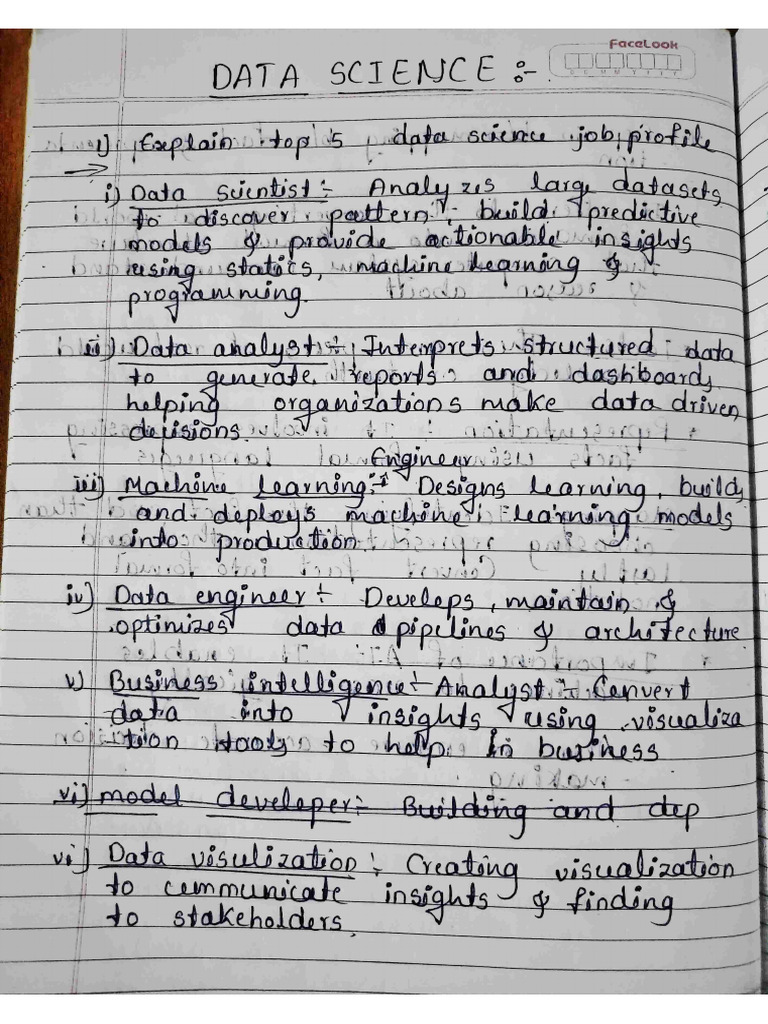 FaceLook
DATA SCIENCE :-
1) Explain top 5 data science job profile
i) Data scientist :- Analyzes large datasets
to discover pattern, build predictive
models & provide actionable insights
using statics, machine learning &
programming.
ii) Data analyst :- Interprets structured data
to generate reports and dashboards,
helping organizations make data driven
decisions.
Engineer
iii) Machine Learning :- Designs learning, builds
and deploys machine learning models
into production
iv) Data engineer :- Develops, maintain &
optimizes data pipelines & architecture
v) Business intelligence - Analyst :- Convert
data into insights using visualiza
tion tools to help in business
vi) model developer :- Building and dep
vi) Data visulization :- Creating visualization
to communicate insights & finding
to stakeholders.